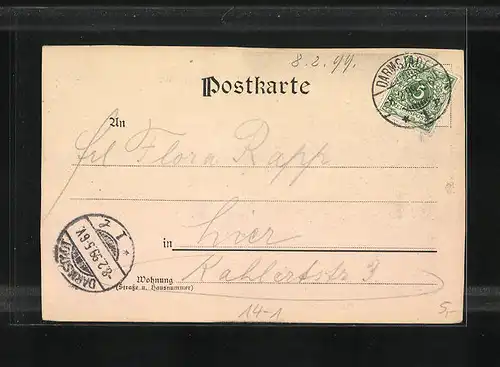 8.2.99.
Postkarte
DARMSTADT
5
An
Frl Flora Rapp
in hier
Kahlertstr 3
Wohnung
(Straße u. Hausnummer)
DARMSTADT
-8.2.99.5-6N.
14-1
5,-